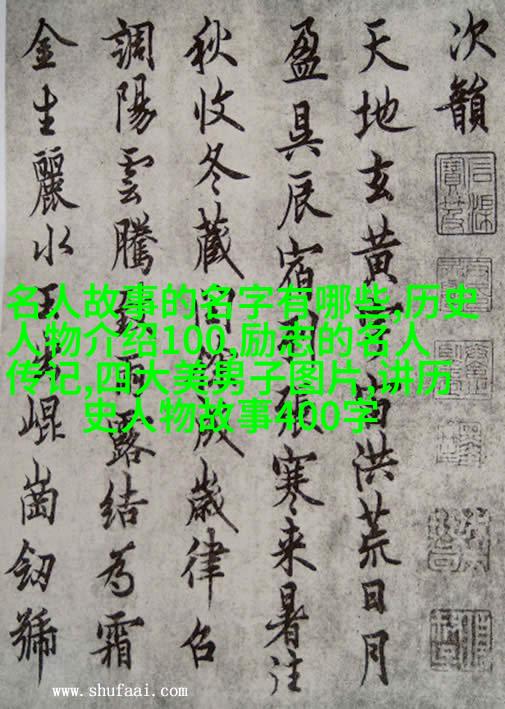 次韻
天地玄黃宇宙洪荒日月
盈昃辰宿列張寒来暑往
秋收冬藏閏餘成歲律召
調陽雲騰致雨露結為霜
金生麗水玉出崐崗劒號
名人故事的名字有哪些,历史
人物介绍100,励志的名人
传记,四大美男子图片,讲历
史人物故事400字
www.shufaai.com